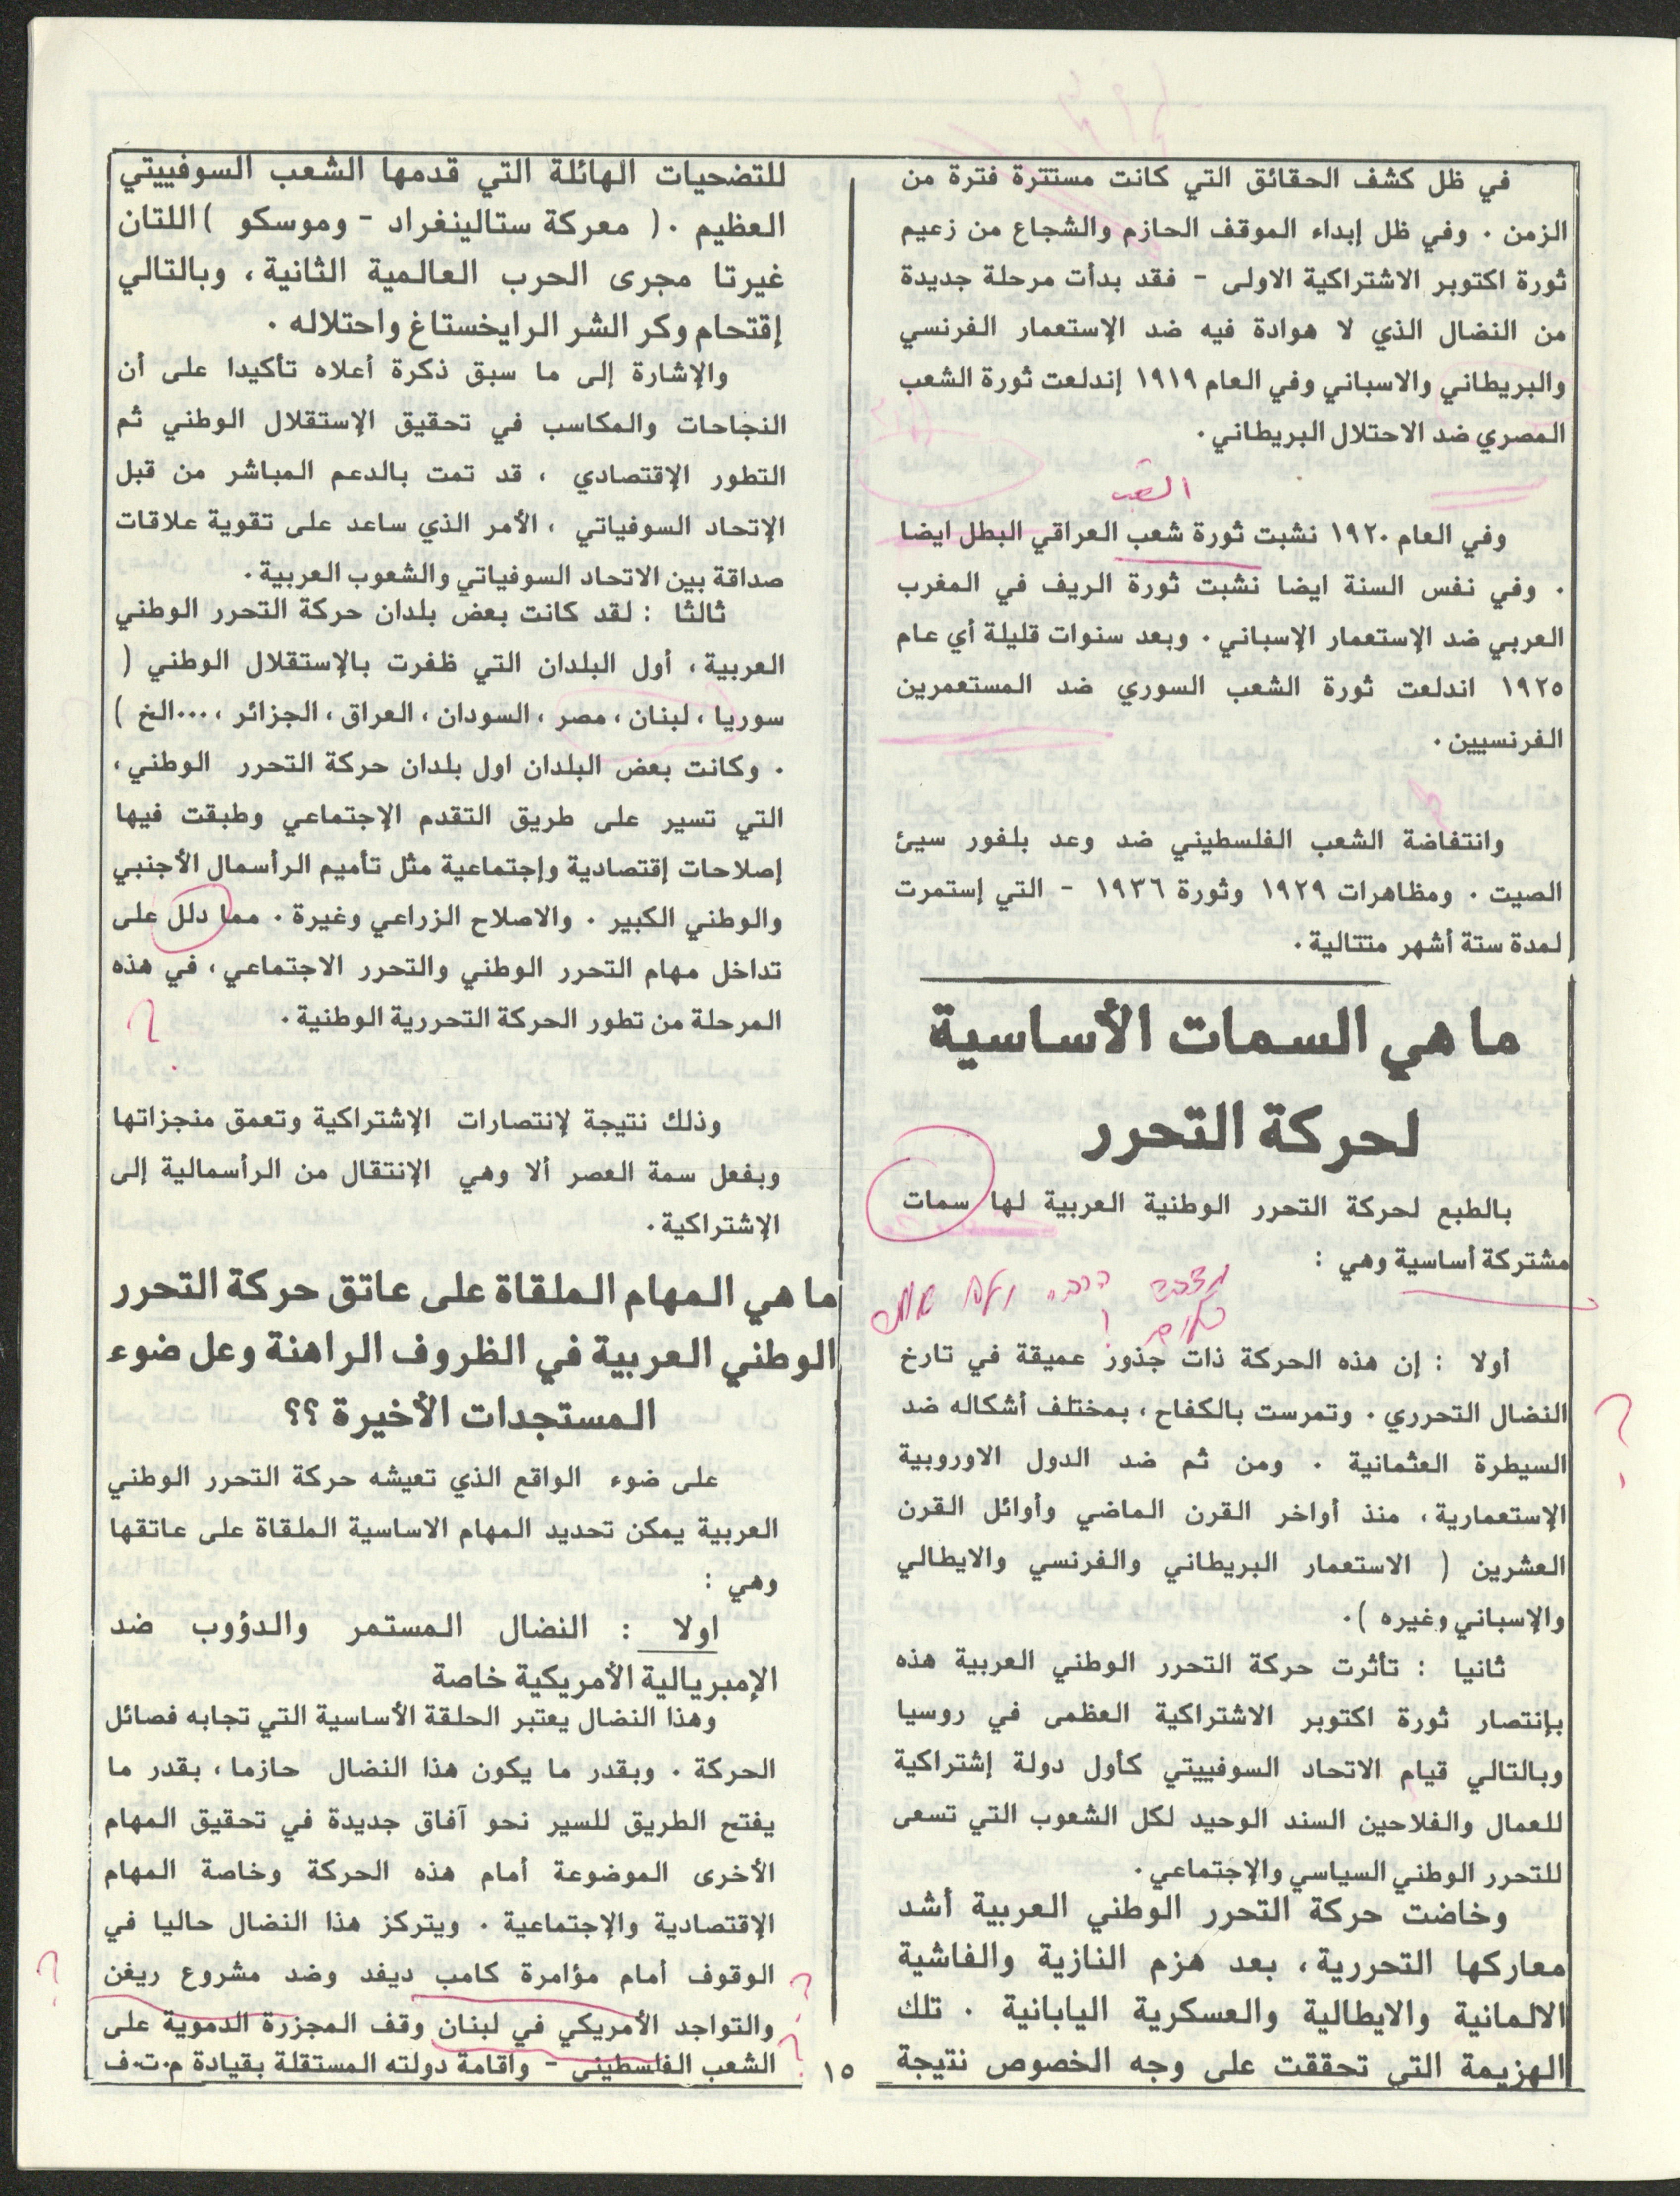 في ظل كشف الحقائق التي كانت مستترة فترة من
الزمن . وفي ظل إبداء الموقف الحازم والشجاع من زعيم
ثورة اكتوبر الاشتراكية الاولى - فقد بدأت مرحلة جديدة
من النضال الذي لا هوادة فيه ضد الإستعمار الفرنسي
والبريطاني والاسباني وفي العام ١٩١٩ إندلعت ثورة الشعب
المصري ضد الاحتلال البريطاني .
الشعب
وفي العام ١٩٢٠ نشبت ثورة شعب العراقي البطل ايضا
. وفي نفس السنة ايضا نشبت ثورة الريف في المغرب
العربي ضد الإستعمار الإسباني . وبعد سنوات قليلة أي عام
١٩٢٥ اندلعت ثورة الشعب السوري ضد المستعمرين
الفرنسيين .
وانتفاضة الشعب الفلسطيني ضد وعد بلفور سيئ
الصيت . ومظاهرات ١٩٢٩ وثورة ١٩٣٦ - التي إستمرت
لمدة ستة أشهر متتالية .
ما هي السمات الأساسية
لحركة التحرر
بالطبع لحركة التحرر الوطنية العربية لها سمات
مشتركة أساسية وهي :
أولا : إن هذه الحركة ذات جذور عميقة في تارخ
النضال التحرري . وتمرست بالكفاح ، بمختلف أشكاله ضد
السيطرة العثمانية . ومن ثم ضد الدول الاوروبية
الإستعمارية ، منذ أواخر القرن الماضي وأوائل القرن
العشرين ( الاستعمار البريطاني والفرنسي والايطالي
والإسباني وغيره ) .
ثانيا : تأثرت حركة التحرر الوطني العربية هذه
بإنتصار ثورة اكتوبر الاشتراكية العظمى في روسيا
وبالتالي قيام الاتحاد السوفييتي كأول دولة إشتراكية
للعمال والفلاحين السند الوحيد لكل الشعوب التي تسعى
للتحرر الوطني السياسي والإجتماعي .
وخاضت حركة التحرر الوطني العربية أشد
معاركها التحررية ، بعد هزم النازية والفاشية
الالمانية والايطالية والعسكرية اليابانية . تلك
الهزيمة التي تحققت على وجه الخصوص نتيجة
للتضحيات الهائلة التي قدمها الشعب السوفييتي
العظيم . ( معركة ستالينغراد - وموسكو ) اللتان
غيرتا مجرى الحرب العالمية الثانية ، وبالتالي
إقتحام وكر الشر الرايخستاغ واحتلاله .
والإشارة إلى ما سبق ذكرة أعلاه تأكيدا على أن
النجاحات والمكاسب في تحقيق الإستقلال الوطني ثم
التطور الإقتصادي ، قد تمت بالدعم المباشر من قبل
الإتحاد السوفياتي ، الأمر الذي ساعد على تقوية علاقات
صداقة بين الاتحاد السوفياتي والشعوب العربية .
ثالثا : لقد كانت بعض بلدان حركة التحرر الوطني
العربية ، أول البلدان التي ظفرت بالإستقلال الوطني (
سوريا ، لبنان ، مصر ، السودان ، العراق ، الجزائر ، ...الخ )
. وكانت بعض البلدان اول بلدان حركة التحرر الوطني ،
التي تسير على طريق التقدم الإجتماعي وطبقت فيها
إصلاحات إقتصادية وإجتماعية مثل تأميم الرأسمال الأجنبي
والوطني الكبير . والاصلاح الزراعي وغيرة . مما دلل على
تداخل مهام التحرر الوطني والتحرر الاجتماعي ، في هذه
المرحلة من تطور الحركة التحررية الوطنية .
وذلك نتيجة لإنتصارات الإشتراكية وتعمق منجزاتها
وبفعل سمة العصر ألا وهي الإنتقال من الرأسمالية إلى
الإشتراكية .
ما هي المهام الملقاة على عاتق حركة التحرر
الوطني العربية في الظروف الراهنة وعل ضوء
المستجدات الأخيرة ؟؟
على ضوء الواقع الذي تعيشه حركة التحرر الوطني
العربية يمكن تحديد المهام الاساسية الملقاة على عاتقها
وهي :
اولا : النضال المستمر والدؤوب ضد
الإمبريالية الأمريكية خاصة
وهذا النضال يعتبر الحلقة الأساسية التي تجابه فصائل
الحركة . وبقدر ما يكون هذا النضال حازما ، بقدر ما
يفتح الطريق للسير نحو آفاق جديدة في تحقيق المهام
الأخرى الموضوعة أمام هذه الحركة وخاصة المهام
الإقتصادية والإجتماعية . ويتركز هذا النضال حاليا في
الوقوف أمام مؤامرة كامب ديفد وضد مشروع ريغن
والتواجد الأمريكي في لبنان وقف المجزرة الدموية على
الشعب الفلسطيني - واقامة دولته المستقلة بقيادة م.ت.ف
١٥